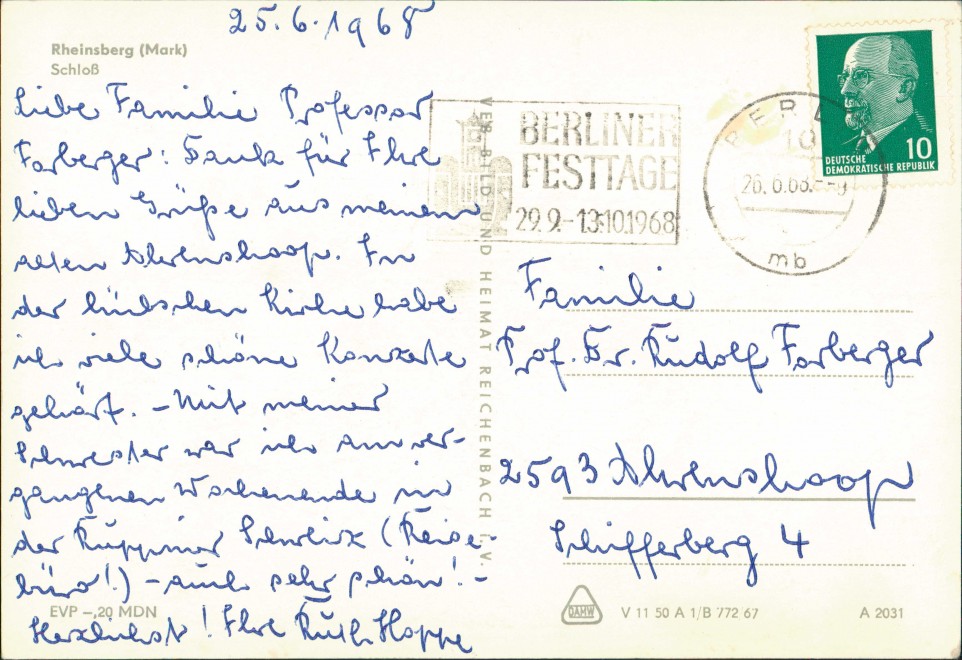 25.6.1968
Rheinsberg (Mark)
Schloß
Liebe Familie Professor
Forberger: Dank für Ihre
lieben Grüße aus meinem
alten Ahrenshoop. In
der hübschen Kirche habe
ich viele schöne Konzerte
gehört. – Mit meiner
Schwester war ich am ver-
gangenen Wochenende in
der Ruppiner Schweiz (Reise-
büro!) – auch sehr schön! –
Herzlichst! Ihre Ruth Hoppe
EVP –,20 MDN
VEB BILD UND HEIMAT REICHENBACH I. V.
BERLINER
FESTTAGE
29.9.–13.10.1968
BERLIN
10
26.6.68
mb
10
DEUTSCHE
DEMOKRATISCHE REPUBLIK
Familie
Prof. Dr. Rudolf Forberger
2593 Ahrenshoop
Schifferberg 4
DAMW
V 11 50 A 1/B 772 67
A 2031